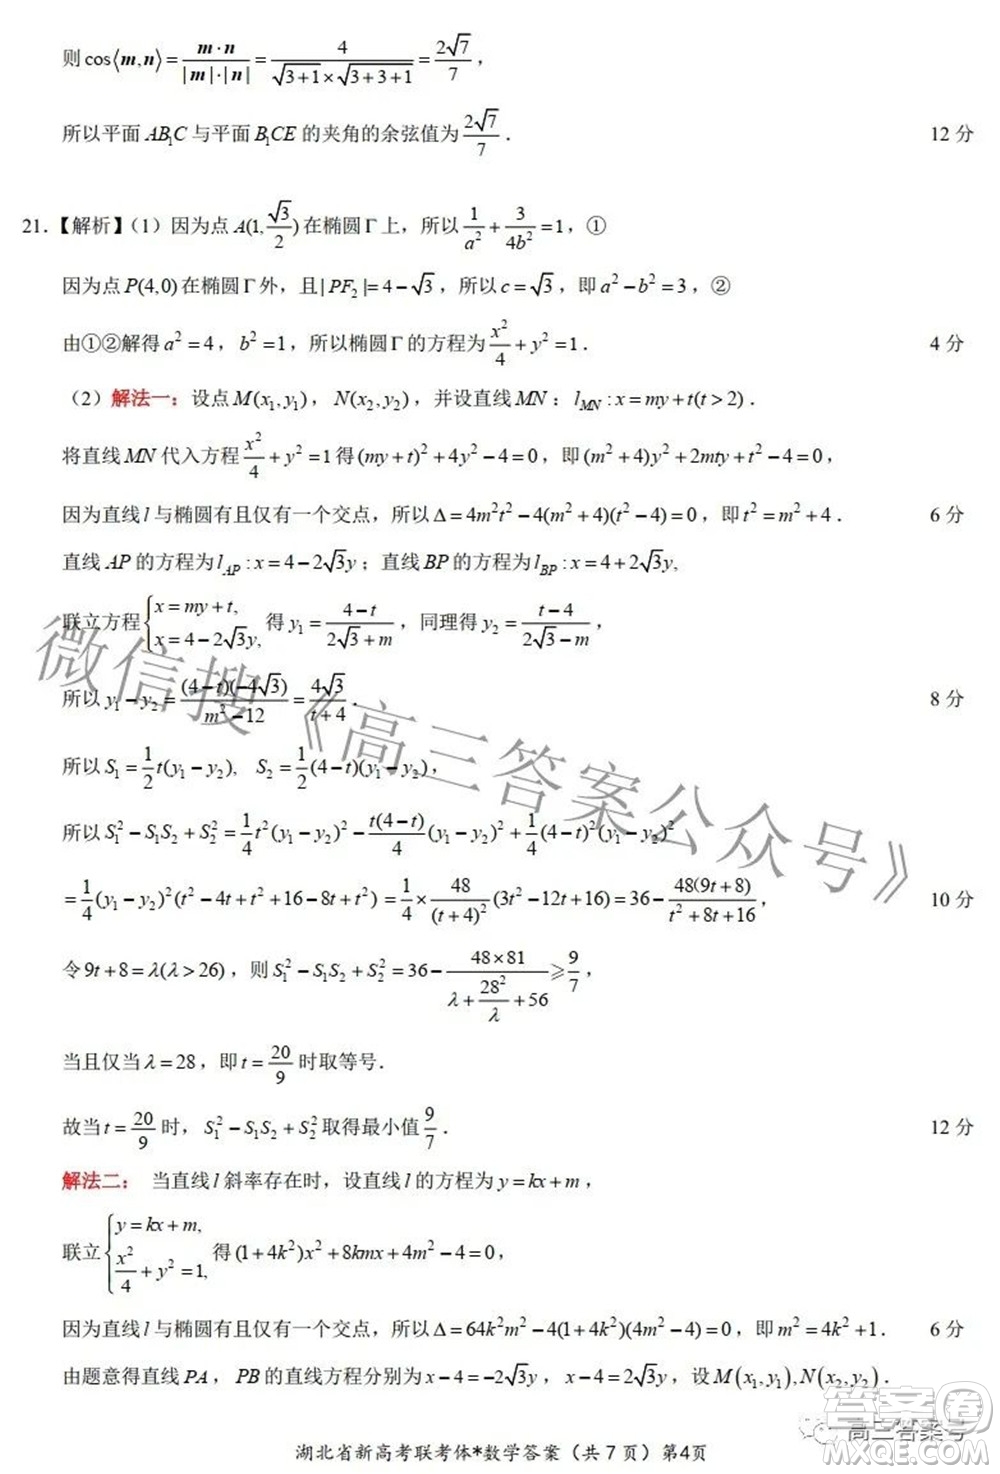 则 cos⟨m,n⟩ = m·n / |m|·|n| = 4 / (√(3+1)×√(3+3+1)) = 2√7/7，
所以平面 AB₁C 与平面 B₁CE 的夹角的余弦值为 2√7/7． 12 分
21．【解析】（1）因为点 A(1, √3/2) 在椭圆 Γ 上，所以 1/a² + 3/4b² = 1，①
因为点 P(4,0) 在椭圆 Γ 外，且 |PF₂|=4−√3，所以 c=√3，即 a²−b²=3，②
由①②解得 a²=4，b²=1，所以椭圆 Γ 的方程为 x²/4 + y² = 1． 4 分
（2）解法一：设点 M(x₁,y₁)，N(x₂,y₂)，并设直线 MN：l_MN : x=my+t(t>2)．
将直线 MN 代入方程 x²/4 + y² = 1 得 (my+t)²+4y²−4=0，即 (m²+4)y²+2mty+t²−4=0，
因为直线 l 与椭圆有且仅有一个交点，所以 Δ=4m²t²−4(m²+4)(t²−4)=0，即 t²=m²+4． 6 分
直线 AP 的方程为 l_AP : x=4−2√3y；直线 BP 的方程为 l_BP : x=4+2√3y,
联立方程 { x=my+t, x=4−2√3y, 得 y₁ = (4−t)/(2√3+m)，同理得 y₂ = (t−4)/(2√3−m)，
所以 y₁−y₂ = (4−t)(−4√3)/(m²−12) = 4√3/(t+4)． 8 分
所以 S₁ = 1/2 t(y₁−y₂), S₂ = 1/2 (4−t)(y₁−y₂)，
所以 S₁²−S₁S₂+S₂² = 1/4 t²(y₁−y₂)² − t(4−t)/4 (y₁−y₂)² + 1/4 (4−t)²(y₁−y₂)²
= 1/4 (y₁−y₂)²(t²−4t+t²+16−8t+t²) = 1/4 × 48/(t+4)² (3t²−12t+16) = 36 − 48(9t+8)/(t²+8t+16)， 10 分
令 9t+8=λ(λ>26)，则 S₁²−S₁S₂+S₂² = 36 − 48×81/(λ+28²/λ+56) ⩾ 9/7，
当且仅当 λ=28，即 t=20/9 时取等号．
故当 t=20/9 时，S₁²−S₁S₂+S₂² 取得最小值 9/7． 12 分
解法二： 当直线 l 斜率存在时，设直线 l 的方程为 y=kx+m，
联立 { y=kx+m, x²/4 + y² = 1, 得 (1+4k²)x²+8kmx+4m²−4=0，
因为直线 l 与椭圆有且仅有一个交点，所以 Δ=64k²m²−4(1+4k²)(4m²−4)=0，即 m²=4k²+1． 6 分
由题意得直线 PA，PB 的直线方程分别为 x−4=−2√3y，x−4=2√3y，设 M(x₁,y₁),N(x₂,y₂)．
湖北省新高考联考体*数学答案（共 7 页）第4页
微信搜《高三答案公众号》
高三答案号
答案圈